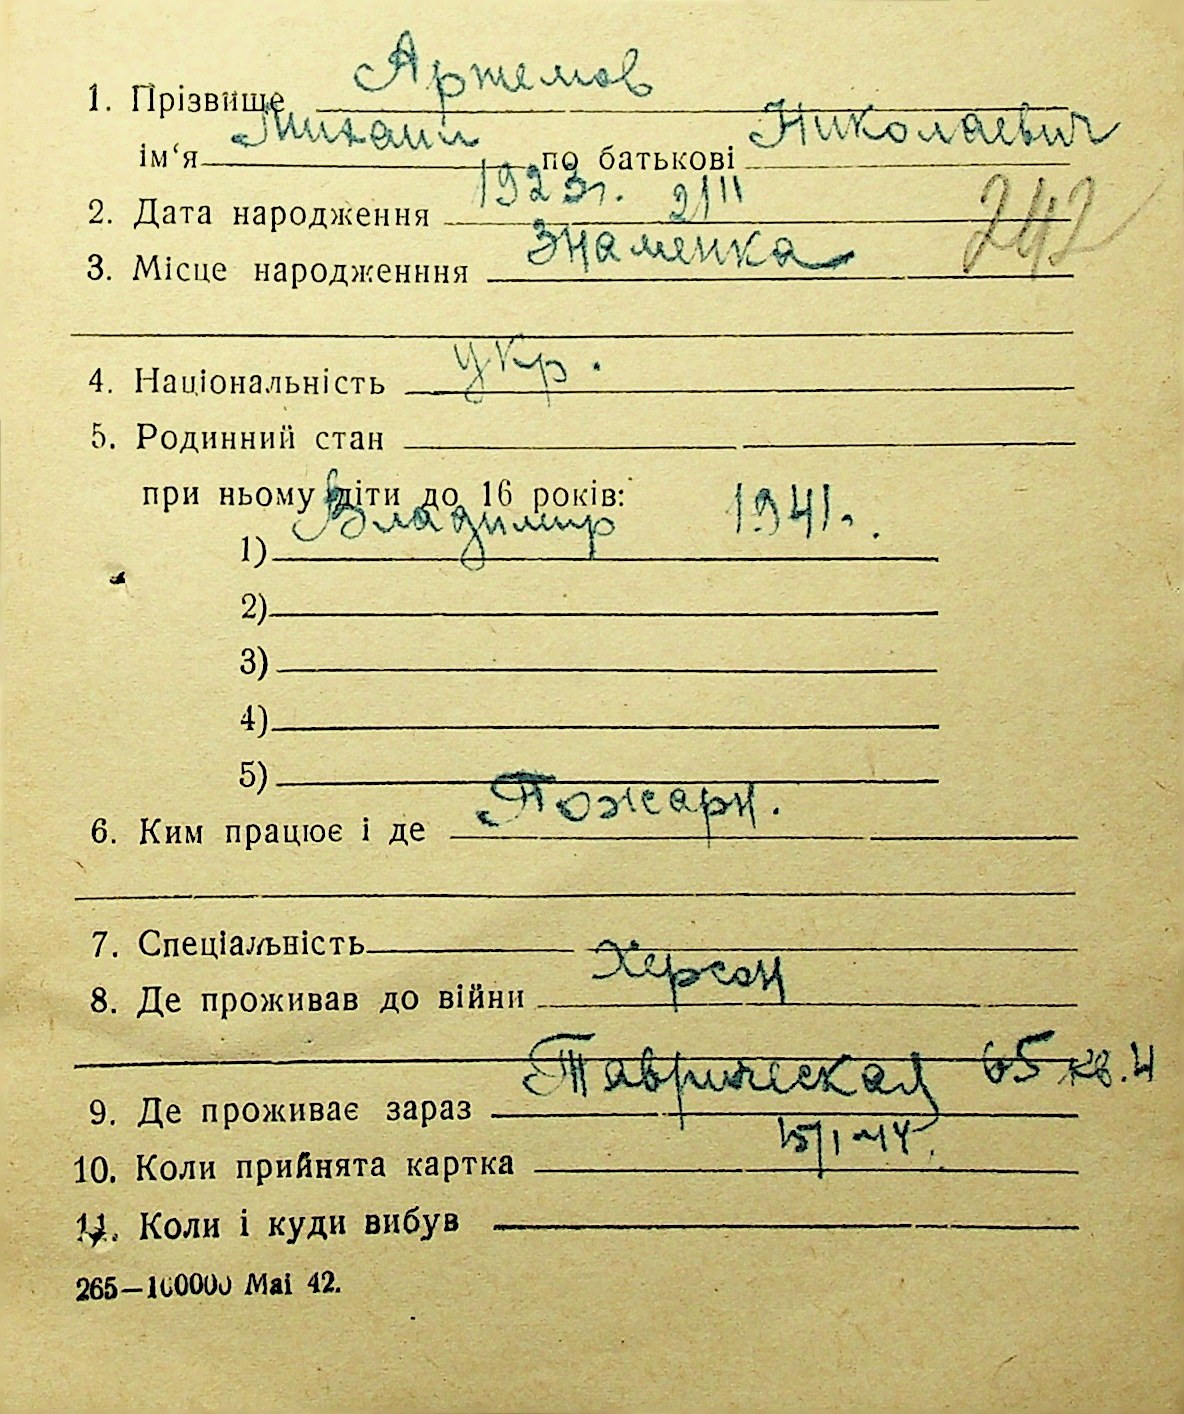 Артемов
1. Прізвище
Михаил Николаевич
ім‘я по батькові
1923г. 21 II
2. Дата народження
242
Знаменка
3. Місце народженння
укр.
4. Національність
5. Родинний стан
при ньому діти до 16 років:
Владимир 1941.
1)
2)
3)
4)
5)
Пожарн.
6. Ким працює і де
7. Спеціальність
Херсон
8. Де проживав до війни
Таврическая 65 кв. 4
9. Де проживає зараз
15/I-44.
10. Коли прийнята картка
11. Коли і куди вибув
265—100000 Mai 42.